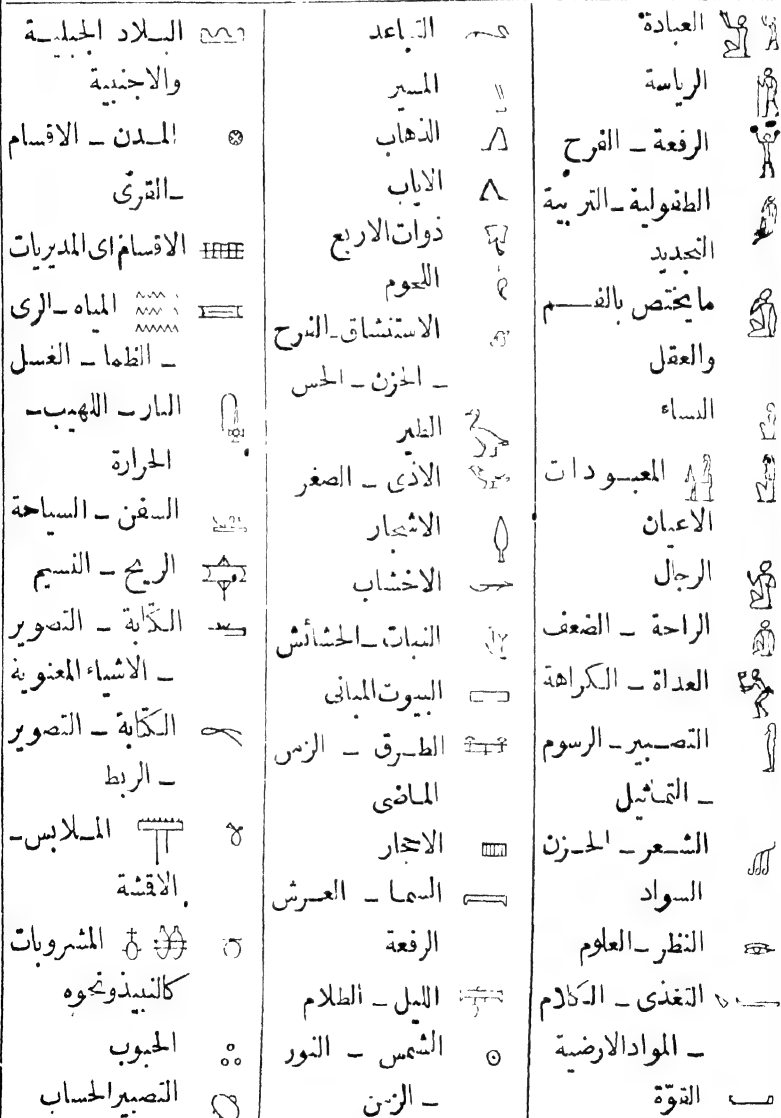 العبادة
الرياسة
الرفعة ـ الفرح
الطفولية ـ التربية
التجديد
ما يختص بالفـــم
والعقل
النساء
المعبـودات
الاعيان
الرجال
الراحة ـ الضعف
العداة ـ الكراهة
التصـبير ـ الرسوم
ـ التماثيل
الشـعر ـ الحـزن
السواد
النظر ـ العلوم
التغذى ـ الكلام
ـ المواد الارضية
القوّة
التباعد
المسير
الذهاب
الاياب
ذوات الاربع
اللحوم
الاستنشاق ـ الفرح
ـ الحزن ـ الحس
الطير
الأذى ـ الصغر
الاشجار
الاخشاب
النبات ـ الحشائش
البيوت المبانى
الطـرق ـ الزمن
المـاضى
الاحجار
السما ـ العـرش
الرفعة
الليل ـ الظلام
الشمس ـ النور
ـ الزمن
البـلاد الجبليـة
والاجنبية
المـدن ـ الاقسام
ـ القرى
الاقسام اى المديريات
المياه ـ الرى
ـ الظما ـ الغسل
النار ـ اللهيب ـ
الحرارة
السفن ـ السياحة
الريح ـ النسيم
الكتابة ـ التصوير
ـ الاشياء المعنوية
الكتابة ـ التصوير
ـ الربط
المـلابس ـ
الاقشة
المشروبات
كالنبيذ ونحوه
الحبوب
التصبير الحساب